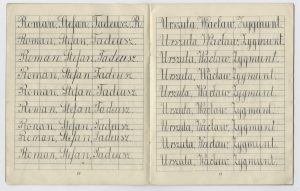 Roman, Stefan, Tadeusz. R.
Roman, Stefan, Tadeusz.
Roman, Stefan, Tadeusz.
Roman, Stefan, Tadeusz.
Roman, Stefan, Tadeusz.
Roman, Stefan, Tadeusz.
Roman, Stefan, Tadeusz.
Roman, Stefan, Tadeusz.
Roman, Stefan, Tadeusz.
Urszula, Wacław, Zygmunt.
Urszula, Wacław, Zygmunt.
Urszula, Wacław, Zygmunt.
Urszula, Wacław, Zygmunt.
Urszula, Wacław, Zygmunt.
Urszula, Wacław, Zygmunt.
Urszula, Wacław, Zygmunt.
Urszula, Wacław, Zygmunt.
Urszula, Wacław, Zygmunt.